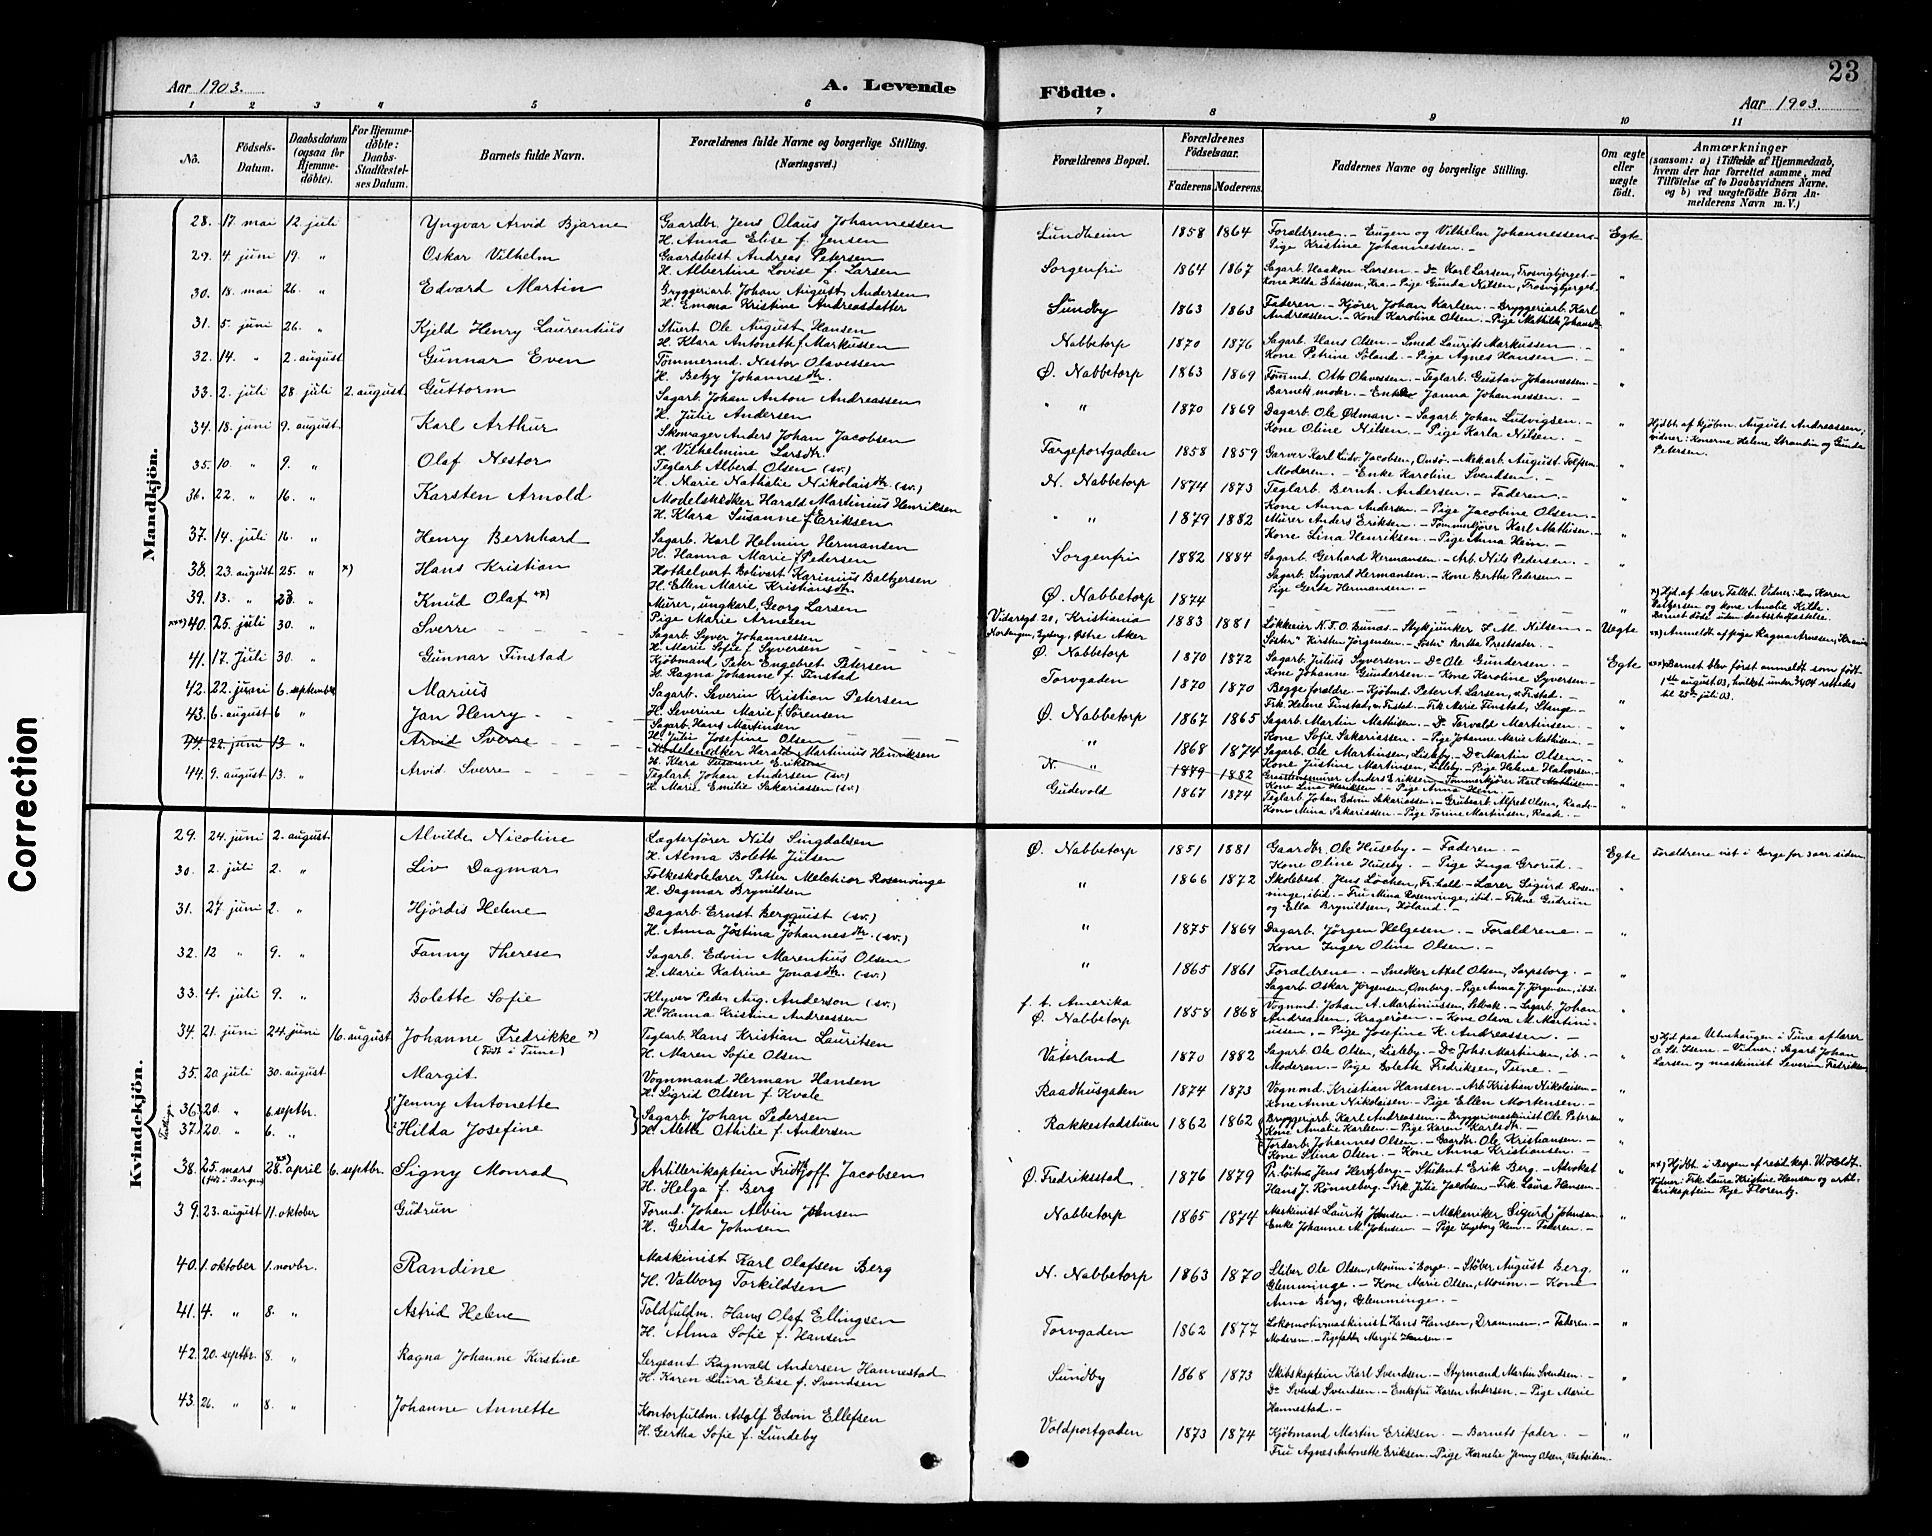 Correction
Aar 1903.
A. Levende
Födte.
23
Aar 1903.
1 2 3 4 5 6 7 8 9 10 11
Nô.
Födsels-Datum.
Daabsdatum (ogsaa for Hjemme-döbte).
For Hjemme-döbte: Daabs-Stadfæstel-ses Datum.
Barnets fulde Navn.
Forældrenes fulde Navne og borgerlige Stilling. (Næringsvei.)
Forældrenes Bopæl.
Forældrenes Födselsaar.
Faderens. Moderens.
Faddernes Navne og borgerlige Stilling.
Om ægte eller uægte födt.
Anmærkninger
(saasom: a) i Tilfælde af Hjemmedaab, hvem der har forrettet samme, med Tilföielse af to Daabsvidners Navne. og b) ved uægtefödte Börn An-melderens Navn m. V.)
Mandkjön.
28. 17. mai 12. juli Yngvar Arvid Bjarne Gaardbr. Jens Olaus Johannessen
H. Anna Elise f. Jensen
Lundheim 1858 1864 Forældrene. - Eugen og Vilhelm Johannessens
Pige Kristine Johannessen. - Egte
29. 4. juni 19. " Oskar Vilhelm Gaardsbest Andreas Petersen
H. Albertine Lovise f. Larsen
Sorgenfri 1864 1867 Sagarb. Haakon Larsen. - Do Karl Larsen, Trosvigbjerget. -
Kone Hilda Eliassen, Kra. - Pige Gunda Nilsen, Trosvigbjerget. "
30. 18. mai 26. " Edvard Martin Bryggeriarb. Johan August Andersen
H. Emma Kristine Andreasdatter
Sundby 1863 1863 Faderen. - Kjører Johan Karlsen. - Bryggeriarb. Karl
Andreassen. - Kone Karoline Olsen. - Pige Mathilde Johansdr. "
31. 5. juni 26. " Kjeld Henry Laurentius Stuert Ole August Hansen
H. Klara Antonette f. Markussen
Nabbetorp 1870 1876 Sagarb. Hans Olsen. - Smed Laurits Markussen. -
Kone Petrine Söland. - Pige Agnes Hansen. - "
32. 14. " 2. august Gunnar Even Tømmermd. Nestor Olavessen
H. Betzy Johannesdtr.
Ø. Nabbetorp 1863 1869 Tømmd. Otto Olavessen. - Teglarb. Gustav Johannessen. -
Barnets moder. - Enke Janna Johannessen. - "
33. 2. juli 28. juli 2. august Guttorm Sagarb. Johan Anton Andreassen
H. Julie Andersen
" " 1870 1869 Dagarb. Ole Østman. - Sagarb. Johan Ludvigsen. -
Kone Oline Nilsen. - Pige Karla Nilsen. - "
Hjdbt. af kjøbm. August Andreassen;
vidner: Konerne Helene Strandin og Gunda
Petersen.
34. 18. juni 9. august Karl Arthur Skomager Anders Johan Jacobsen
H. Vilhelmine Larsdtr.
Færgeportgaden 1858 1859 Garver Karl Ludv. Jacobsen, Onsø. - Mekarb. August Tolfsen
Moderen. - Enke Karoline Svendsen. - "
35. 10. " 9. " Olaf Nestor Teglarb. Albert Olsen (sv.)
H. Marie Nathalie Nikolaisdtr. (sv.)
N. Nabbetorp 1874 1873 Teglarb. Bernh. Andersen. - Faderen. -
Kone Anna Andersen. - Pige Jacobine Olsen. - "
36. 22. " 16. " Karsten Arnold Modelsnedker Harald Martinius Henriksen
H. Klara Susanne f. Eriksen
" " 1879 1882 Murer Anders Eriksen. - Tømmerkjører Karl Mathisen. -
Kone Lina Henriksen. - Pige Anna Heim. - "
37. 14. juli 16. " Henry Bernhard Sagarb. Karl Helmin Hermansen
H. Hanna Marie f. Pedersen
Sorgenfri 1882 1884 Sagarb. Gerhard Hermansen. - Arb. Nils Pedersen. -
Sagarb. Sigvard Hermansen. - Kone Berthe Pedersen. -
Pige Gerda Hermansen. - "
38. 23. august 25. " x) Hans Kristian Hothelvert Bolivart Karinius Baltzersen
H. Ellen Marie Kristiansdtr.
Ø. Nabbetorp 1874 "
x) Hjd. af lærer Fallet. Vidner: Kone Karen
Baltzersen og kone Amalie Kilde.
Barnet døde uden daabsstadfæstelse.
39. 13. " 23. " Knud Olaf xx) Murer, ungkarl, Georg Larsen
Pige Marie Arnesen
Vidarsgd. 28, Kristiania
Østre Aker
1883 1881 Løkkeeier N.T.O. Bunæs. - Stykjunker S.M. Nilsen. -
"Søster" Kirsten Jørgensen. - "Søster" Bertha Prestsæter. - Uegte
xx) Anmeldt af pige Ragna Arnesen, Krania
xxx) 40. 25. juli 30. " Sverre Sagarb. Syver Johannessen
H. Marie Sofie f. Syversen
Ø. Nabbetorp 1870 1872 Sagarb. Julius Syversen. - Do Ole Gundersen. -
Kone Johanne Gundersen. - Kone Karoline Syversen. - Egte
xxx) Barnet blev først anmeldt som født
1ste august 03, hvilket under 3/4 04 rettedes
til 25de juli 03.
41. 17. Juli 30. " Gunnar Finstad Kjøbmand Peter Engebret Petersen
H. Ragna Johanne f. Finstad
Torvgaden 1870 1870 Begge forældre. - Kjøbmd. Peter A. Larsen, v. Fr.stad. -
Frk. Helene Finstad, v. Fr.stad. - Frk. Marie Finstad, Stange. - "
42. 22. juni 6. september Marius Sagarb. Severin Kristian Petersen
H. Severine Marie f. Sørensen
Ø. Nabbetorp 1867 1865 Sagarb. Martin Mathisen. - Do Torvald Martinsen. -
Kone Sofie Sakariassen. - Pige Johanne Marie Mathisen. - "
43. 6. august 6 " Jan Henry Sagarb. Hans Martinsen
H. Julie Josefine Olsen
" 1868 1874 Sagarb. Ole Martinsen, Lisleby. - Do Martin Olsen. -
Kone Justine Martinsen, Lisleby. - Pige Helene Halvorsen. - "
44. 22. juni 13 " Arvid Sverre Modelsnedker Harald Martinius Henriksen
H. Klara Susanne Eriksen
N. " 1879 1882 Murer Anders Eriksen. - Tømmerkjører Karl Mathisen. -
Kone Lina Henriksen. - Pige Anna Heim. - "
44. 9. august 13. " Arvid Sverre Teglarb. Johan Andersen (sv.)
H. Marie Emilie Sakariassen (sv.)
Gudevold 1867 1874 Teglarb. Johan Edvin Sakariassen. - Grubearb. Alfred Olsen, Raade. -
Kone Mina Sakariassen. - Pige Torine Martinsen, Raade. - "
Kvindekjön.
29. 24. juni 2. august Alvilde Nicoline Lægterfører Nils Singdalsen
H. Alma Bolette Julsen
Ø. Nabbetorp 1851 1881 Gaardbr. Ole Huseby. - Faderen. -
Kone Oline Huseby. - Pige Inga Grorud. - Egte
Forældrene viet i Borge for 3 aar siden.
30. 2. juli 2. " Liv Dagmar Folkeskolelærer Petter Melchior Rosenvinge
H. Dagmar Brynildsen
" 1866 1872 Skolebest. Jens Løchen, Fr.hald. - Lærer Sigurd Rosen-
vinge, ibid. - Fru Mina Rosenvinge, ibid. - Frkne Gudrun
og Ella Brynildsen, Høland. - "
31. 27 juni 2. " Hjördis Helene Dagarb. Ernst Bergquist (sv.)
H. Anna Jöstina Johannesdtr. (sv.)
" 1875 1864 Dagarb. Jørgen Helgesen. - Forældrene. -
Kone Inger Oline Olsen. - "
32. 12 " 9. " Fanny Therese Sagarb. Edvin Marentius Olsen
H. Marie Katrine Jonasdtr. (sv.)
" 1865 1861 Forældrene. - Snedker Axel Olsen, Sarpsborg. -
Sagarb. Oskar Jörgensen, Omberg. - Pige Anna J. Jørgensen, ibid. "
33. 4. juli 9. " Bolette Sofie Klyver Peder Aug. Anderson (sv.)
H. Hanna Kristine Andreassen
f. t. Amerika
Ø. Nabbetorp
1858 1868 Vognmd. Johan A. Martiniussen, Selbak. - Sagarb. Johan
Andreassen, Kragerøen. - Kone Olava M. Martini-
ussen. - Pige Josefine K. Andreassen. - "
34. 21. juni 24. juni 16. august Johanne Fredrikke x)
(Født i Tune)
Teglarb. Hans Kristian Lauritsen
H. Maren Sofie Olsen
Vaterland 1870 1882 Sagarb. Ole Olsen, Lisleby. - Do Johs. Martinsen, ib. -
Moderen. - Pige Bolette Fredriksen, Tune. - "
x) Hjd paa Utnehaugen i Tune af lærer
O. St. Isene. - Vidner: Sagarb. Johan
Larsen og maskinist Severin Fredriksen
35. 20 juli 30. august Margit Vognmand Herman Hansen
H. Sigrid Olsen f. Kvale
Raadhusgaden 1874 1873 Vognmd. Kristian Hansen. - Arb Kristian Nikolaisen. -
Kone Anne Nikolaisen. - Pige Ellen Mortensen. - "
36. 20. " 6. septbr. Jenny Antonette
37. 20. " 6. " Hilda Josefine
Sagarb. Johan Pedersen
H. Mette Othilie f. Andersen
Rakkestadstuen 1862 1862 Bryggeriarb. Karl Andreassen. - Bryggerimaskinist Ole Petersen
Kone Amalie Karlsen. - Pige Karen Karlsdtr. -
Jordarb. Johannes Olsen. - Gaardbr. Ole Kristiansen. -
Kone Stina Olsen. - Kone Anna Kristiansen. - "
38. 25. mars (født i Bergen) 28. xx) april 6. septbr. Signy Monrad Artillerikaptein Fridtjoff Jacobsen
H. Helga f. Berg
Ø. Fredriksstad 1876 1879 Pr.løitn. Jens Hertzberg. - Student Erik Berg. - Advokat
Hans J. Rønneberg. - Frk. Julie Jacobsen. - Frk. Laura Hansen. - "
xx) Hjdbt. i Bergen af resid. kap. W. Holdt.
Vidner: Frk. Laura Kristine Hansen og artil-
lerikaptein Rye Florentz.
39. 23. august 11. oktober Gudrun Formd. Johan Alvin Johnsen
H. Gerda Johnsen
Nabbetorp 1865 1874 Maskinist Laurits Johnsen. - Mekaniker Sigurd Johnsen.
Enke Johanne M. Johnsen. - Pige Ingeborg Heim. - Faderen. - "
40. 1. oktober 1. novbr. Randine Maskinist Karl Olafsen Berg
H. Valborg Torkildsen
N. Nabbetorp 1863 1870 Sliber Ole Olsen, Moum i Borge. - Støber August Berg.
Glemminge. - Kone Marie Olsen, Moum. - Kone
Anna Berg, Glemminge. - "
41. 4. " 8. " Astrid Helene Toldfuldm. Hans Olaf Ellingsen
H. Alma Sofie f. Hansen
Torvgaden 1862 1877 Lokomotivmaskinist Hans Hansen, Drammen. - Faderen. -
Moderen. - Margit Hansen. - "
42. 20. septbr. 8. " Ragna Johanne Kirstine Sergeant Ragnvald Andersen Hannestad
H. Karen Laura Elise f. Svendsen
Sundby 1868 1873 Skibskaptein Karl Svendsen. - Styrmand Martin Svendsen. -
Do Svend Svendsen. - Enkefru Karen Andersen. - Pige Marie
Hannestad. - "
43. 26. " 8. " Johanne Annette Kontorfuldm. Adolf Edvin Ellefsen
H. Gertha Sofie f. Lundeby
Voldportgaden 1873 1874 Kjøbmand Martin Eriksen. - Barnets fader. -
Fru Agnes Antonette Eriksen. - Pige Kornelie Jenny Olsen, Vestsiden. "